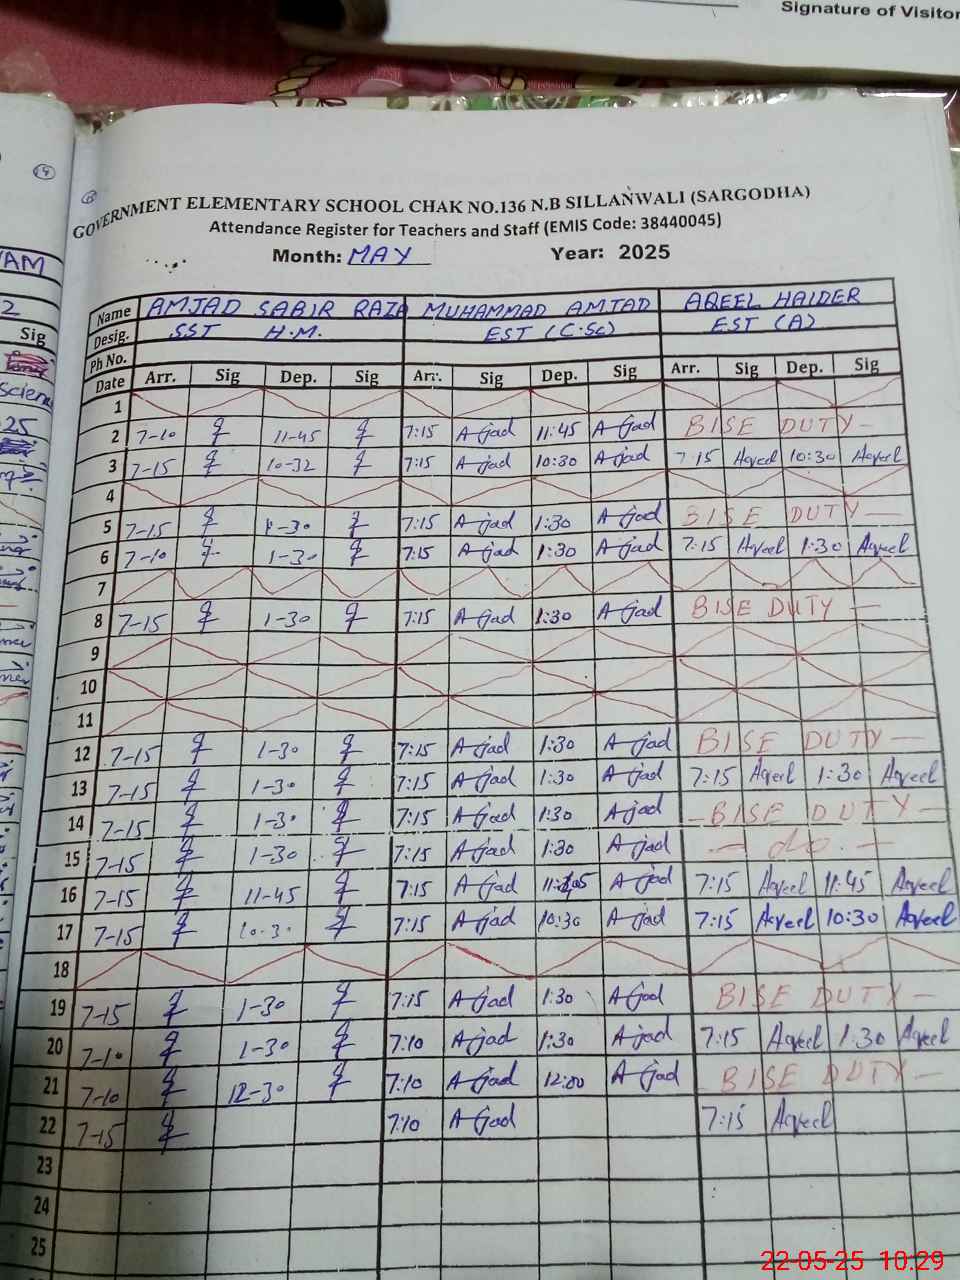 Signature of Visitor
14
GOVERNMENT ELEMENTARY SCHOOL CHAK NO.136 N.B SILLANWALI (SARGODHA)
Attendance Register for Teachers and Staff (EMIS Code: 38440045)
Month: MAY Year: 2025
Name AMJAD SABIR RAZA MUHAMMAD AMJAD AQEEL HAIDER
Desig. SST H.M. EST (C.Sc) EST (A)
Ph No.
Date Arr. Sig Dep. Sig Arr. Sig Dep. Sig Arr. Sig Dep. Sig
1
2 7-10 11-45 7:15 Ajad 11:45 Ajad BISE DUTY —
3 7-15 10-32 7:15 Ajad 10:30 Ajad 7:15 Aqeel 10:30 Aqeel
4
5 7-15 1-30 7:15 Ajad 1:30 Ajad BISE DUTY —
6 7-10 1-30 7:15 Ajad 1:30 Ajad 7:15 Aqeel 1:30 Aqeel
7
8 7-15 1-30 7:15 Ajad 1:30 Ajad BISE DUTY —
9
10
11
12 7-15 1-30 7:15 Ajad 1:30 Ajad BISE DUTY —
13 7-15 1-30 7:15 Ajad 1:30 Ajad 7:15 Aqeel 1:30 Aqeel
14 7-15 1-30 7:15 Ajad 1:30 Ajad — BISE DUTY —
15 7-15 1-30 7:15 Ajad 1:30 Ajad — do. —
16 7-15 11-45 7:15 Ajad Ajad 7:15 Aqeel 11:45 Aqeel
17 7-15 10-30 7:15 Ajad 10:30 Ajad 7:15 Aqeel 10:30 Aqeel
18
19 7-15 1-30 7:15 Ajad 1:30 Ajad BISE DUTY —
20 7-10 1-30 7:10 Ajad 1:30 Ajad 7:15 Aqeel 1:30 Aqeel
21 7-10 12-30 7:10 Ajad 12:00 Ajad BISE DUTY —
22 7-15 7:10 Ajad 7:15 Aqeel
23
24
25
22-05-25 10.29